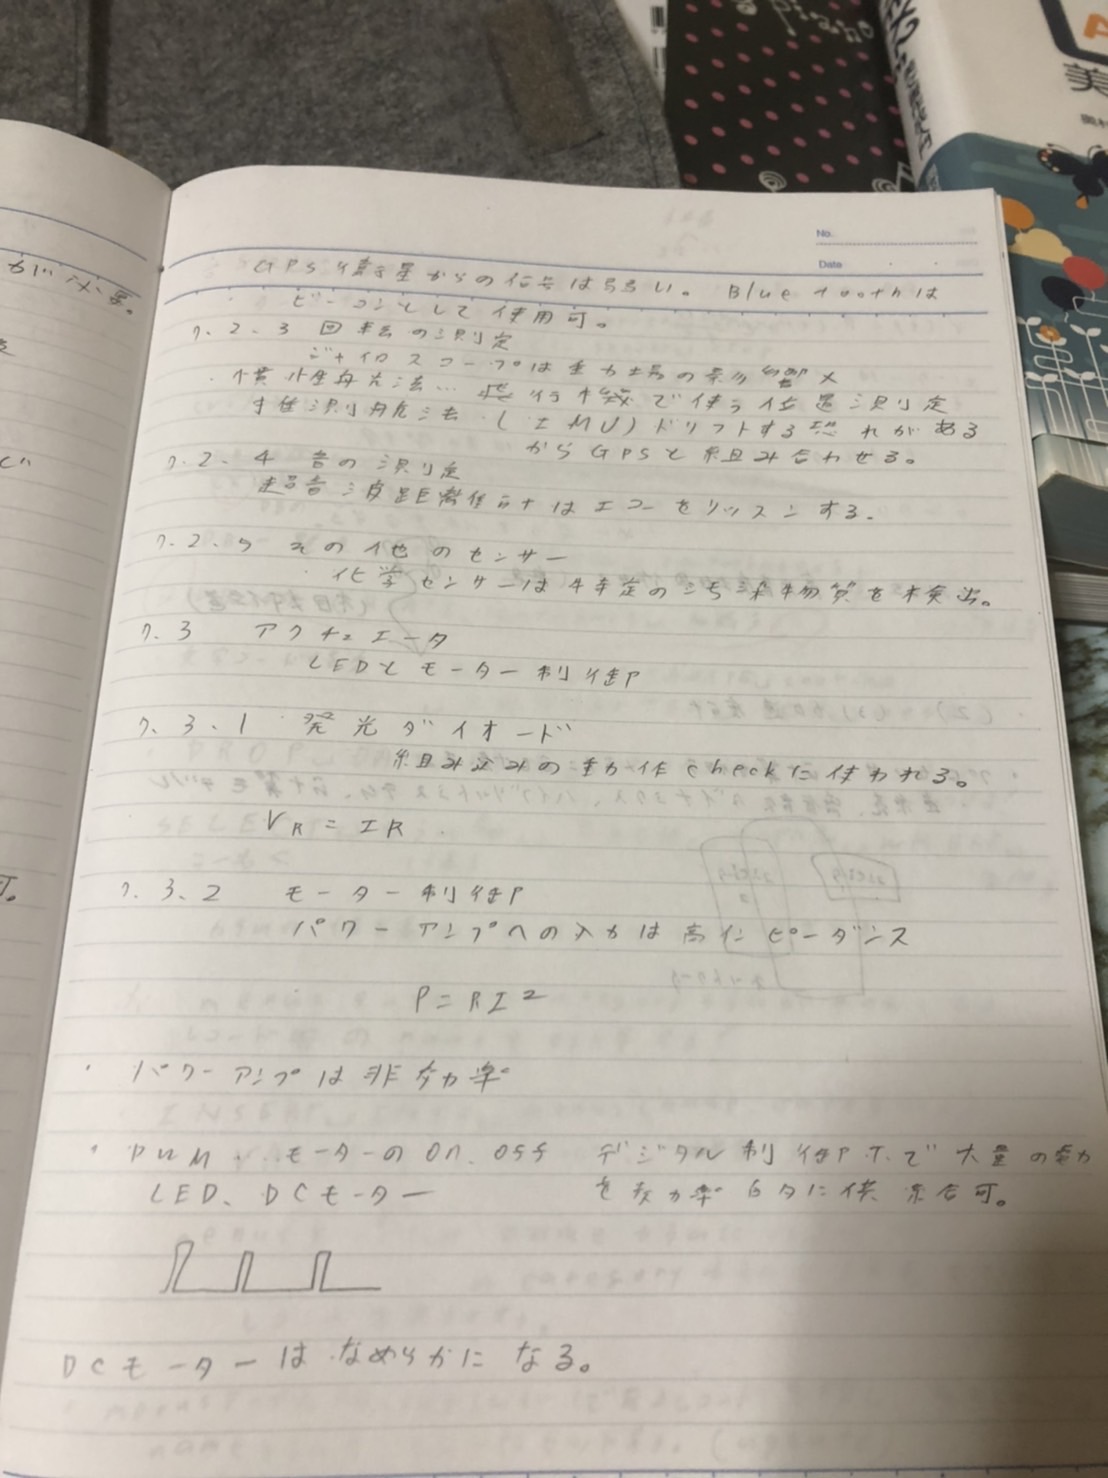 が必要。
No.
Date
GPS衛星からの信号は弱い。Bluetoothは
ビーコンとして使用可。
7.2.3 回転の測定
ジャイロスコープは重力場の影響×
・慣性航法… 飛行機で使う位置測定
寸性測角危法 (IMU)ドリフトする恐れがある
からGPSと組み合わせる。
7.2.4 音の測定
超音波距離計はエコーをリッスンする。
7.2.5 その他のセンサー
・化学センサーは特定の汚染物質を検出。
7.3 アクチュエータ
LEDとモーター制御
7.3.1 発光ダイオード
組み込みの動作checkに使われる。
VR = IR
7.3.2 モーター制御
パワーアンプへの入力は高インピーダンス
P=RI²
・パワーアンプは非効率
・PWM … モーターのon.off デジタル制御下で大量の電力
LED、DCモーター を効率的に供給可。
DCモーターはなめらかになる。
美